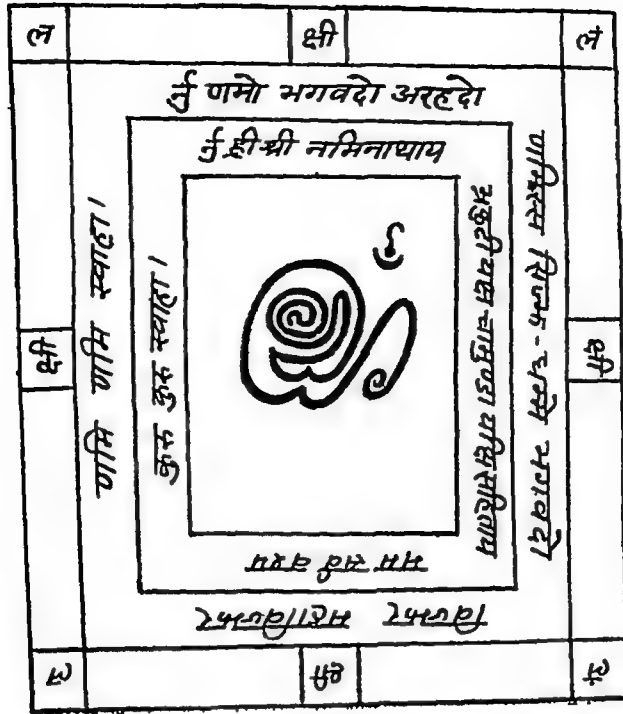 लं
क्षी
लं
र्नु णमो भगवदो अरहदो
णमिस्स सिज्झ-धम्मे भगवदो
विज्झर महाविज्झर
णमि णमि स्वाहा।
र्नु ह्री श्री नमिनाथाय
भ्रकुटी यक्ष चामुण्डा यक्षि सहिताय
मम सर्व वश्य
कुरु कुरु स्वाहा।
क्षी
क्षी
लं
क्षी
लं